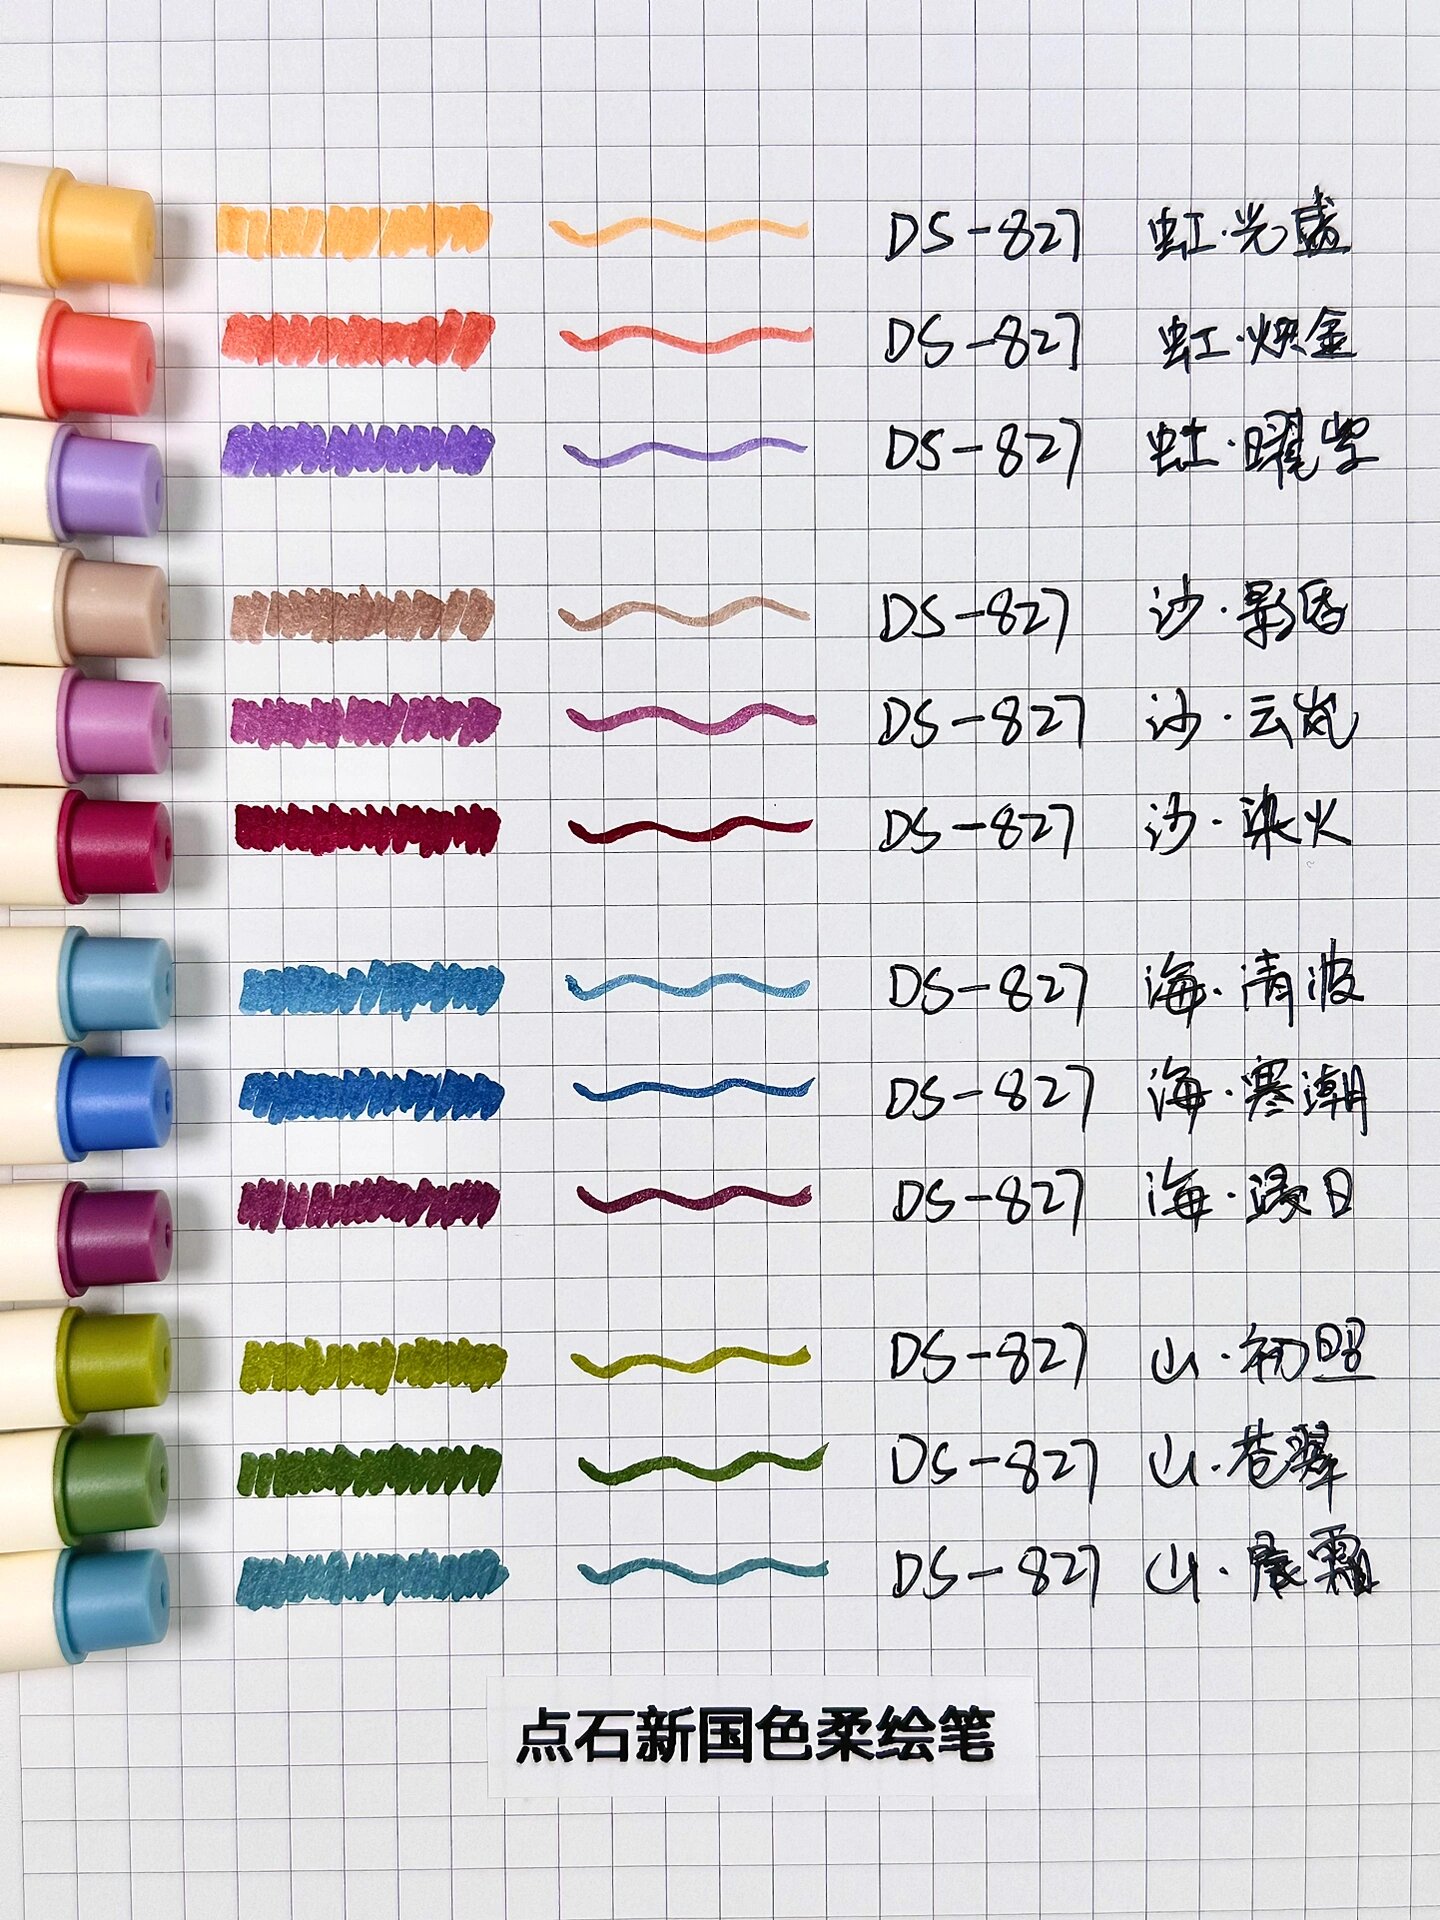 DS-827 虹·光盛
DS-827 虹·炽金
DS-827 虹·曜紫
DS-827 沙·影昏
DS-827 沙·云岚
DS-827 沙·染火
DS-827 海·清波
DS-827 海·寒潮
DS-827 海·浸日
DS-827 山·初曌
DS-827 山·苍翠
DS-827 山·晨霜
点石新国色柔绘笔